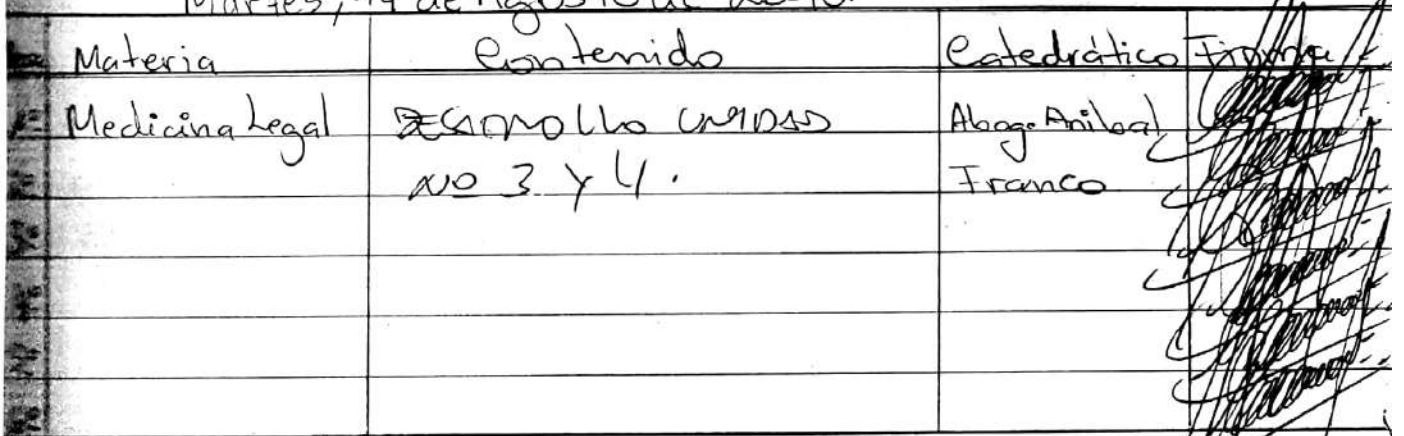 Martes, de Agosto de
Materia Contenido Catedrático Firma
Medicina Legal DESARROLLO UNIDAD Abog. Anibal
No 3 y 4. Franco